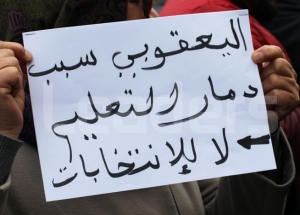 اليعقوبي سبب
دمار التعليم
لا للانتخابات
Leaders